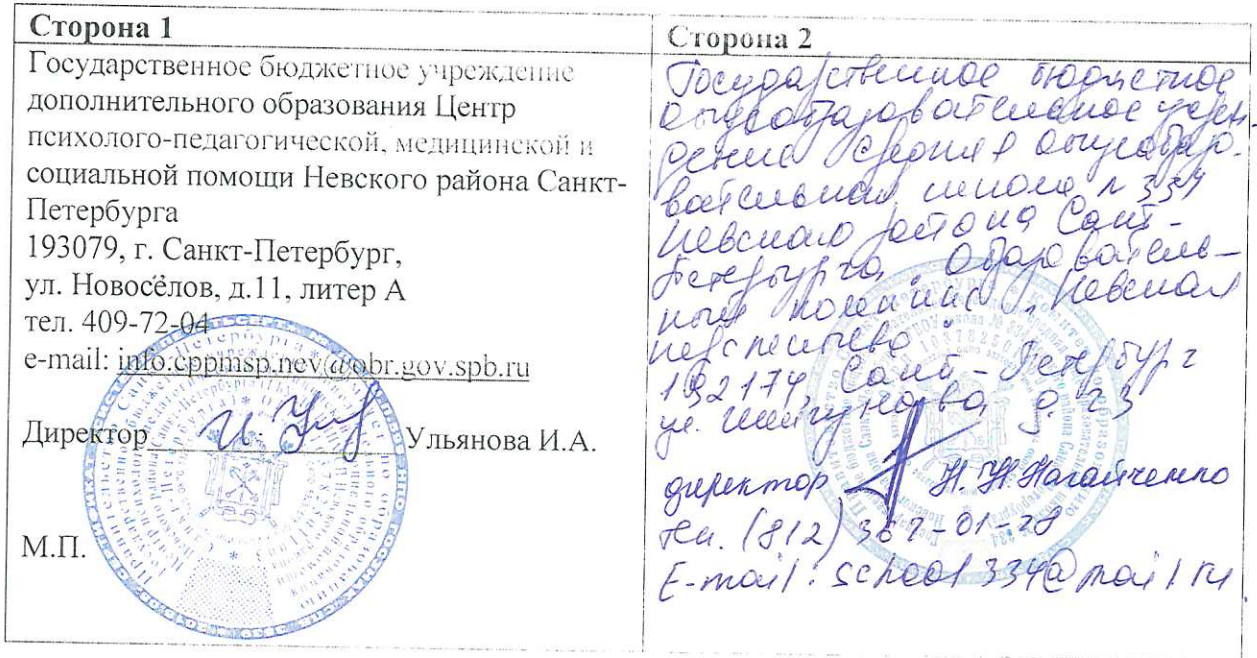 Сторона 1
Государственное бюджетное учреждение
дополнительного образования Центр
психолого-педагогической, медицинской и
социальной помощи Невского района Санкт-
Петербурга
193079, г. Санкт-Петербург,
ул. Новосёлов, д.11, литер А
тел. 409-72-04
e-mail: info.cppmsp.nev@obr.gov.spb.ru
Директор Ульянова И.А.
М.П.
Сторона 2
Государственное бюджетное
общеобразовательное учреж-
дение средняя общеобразо-
вательная школа № 334
Невского района Санкт-
Петербурга. Образователь-
ный комплекс "Невская
перспектива"
192174, Санкт-Петербург
ул. Шелгунова, д. 23
директор Н.Н. Нагайченко
тел. (812) 362-01-28
E-mail: school334@mail.ru